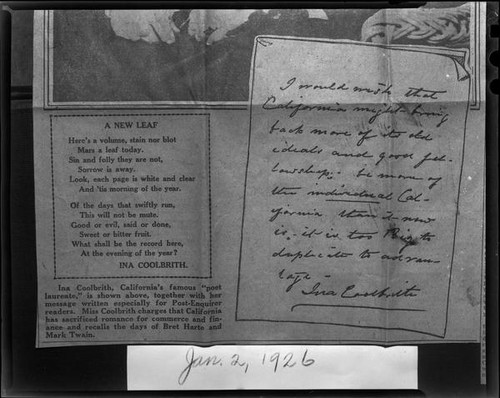 A NEW LEAF
Here's a volume, stain nor blot
Mars a leaf today.
Sin and folly they are not,
Sorrow is away.
Look, each page is white and clear
And 'tis morning of the year.
Of the days that swiftly run,
This will not be mute.
Good or evil, said or done,
Sweet or bitter fruit.
What shall be the record here,
At the evening of the year?
INA COOLBRITH.
Ina Coolbrith, California's famous "poet
laureate," is shown above, together with her
message written especially for Post-Enquirer
readers. Miss Coolbrith charges that California
has sacrificed romance for commerce and fin-
ance and recalls the days of Bret Harte and
Mark Twain.
I would wish that
California might bring
back more of its old
ideals and good fel-
lowship - be more of
the individual Cal-
ifornia than it now
is. it is too Big to
duplicate to advan-
tage -
Ina Coolbrith
Jan. 2, 1926